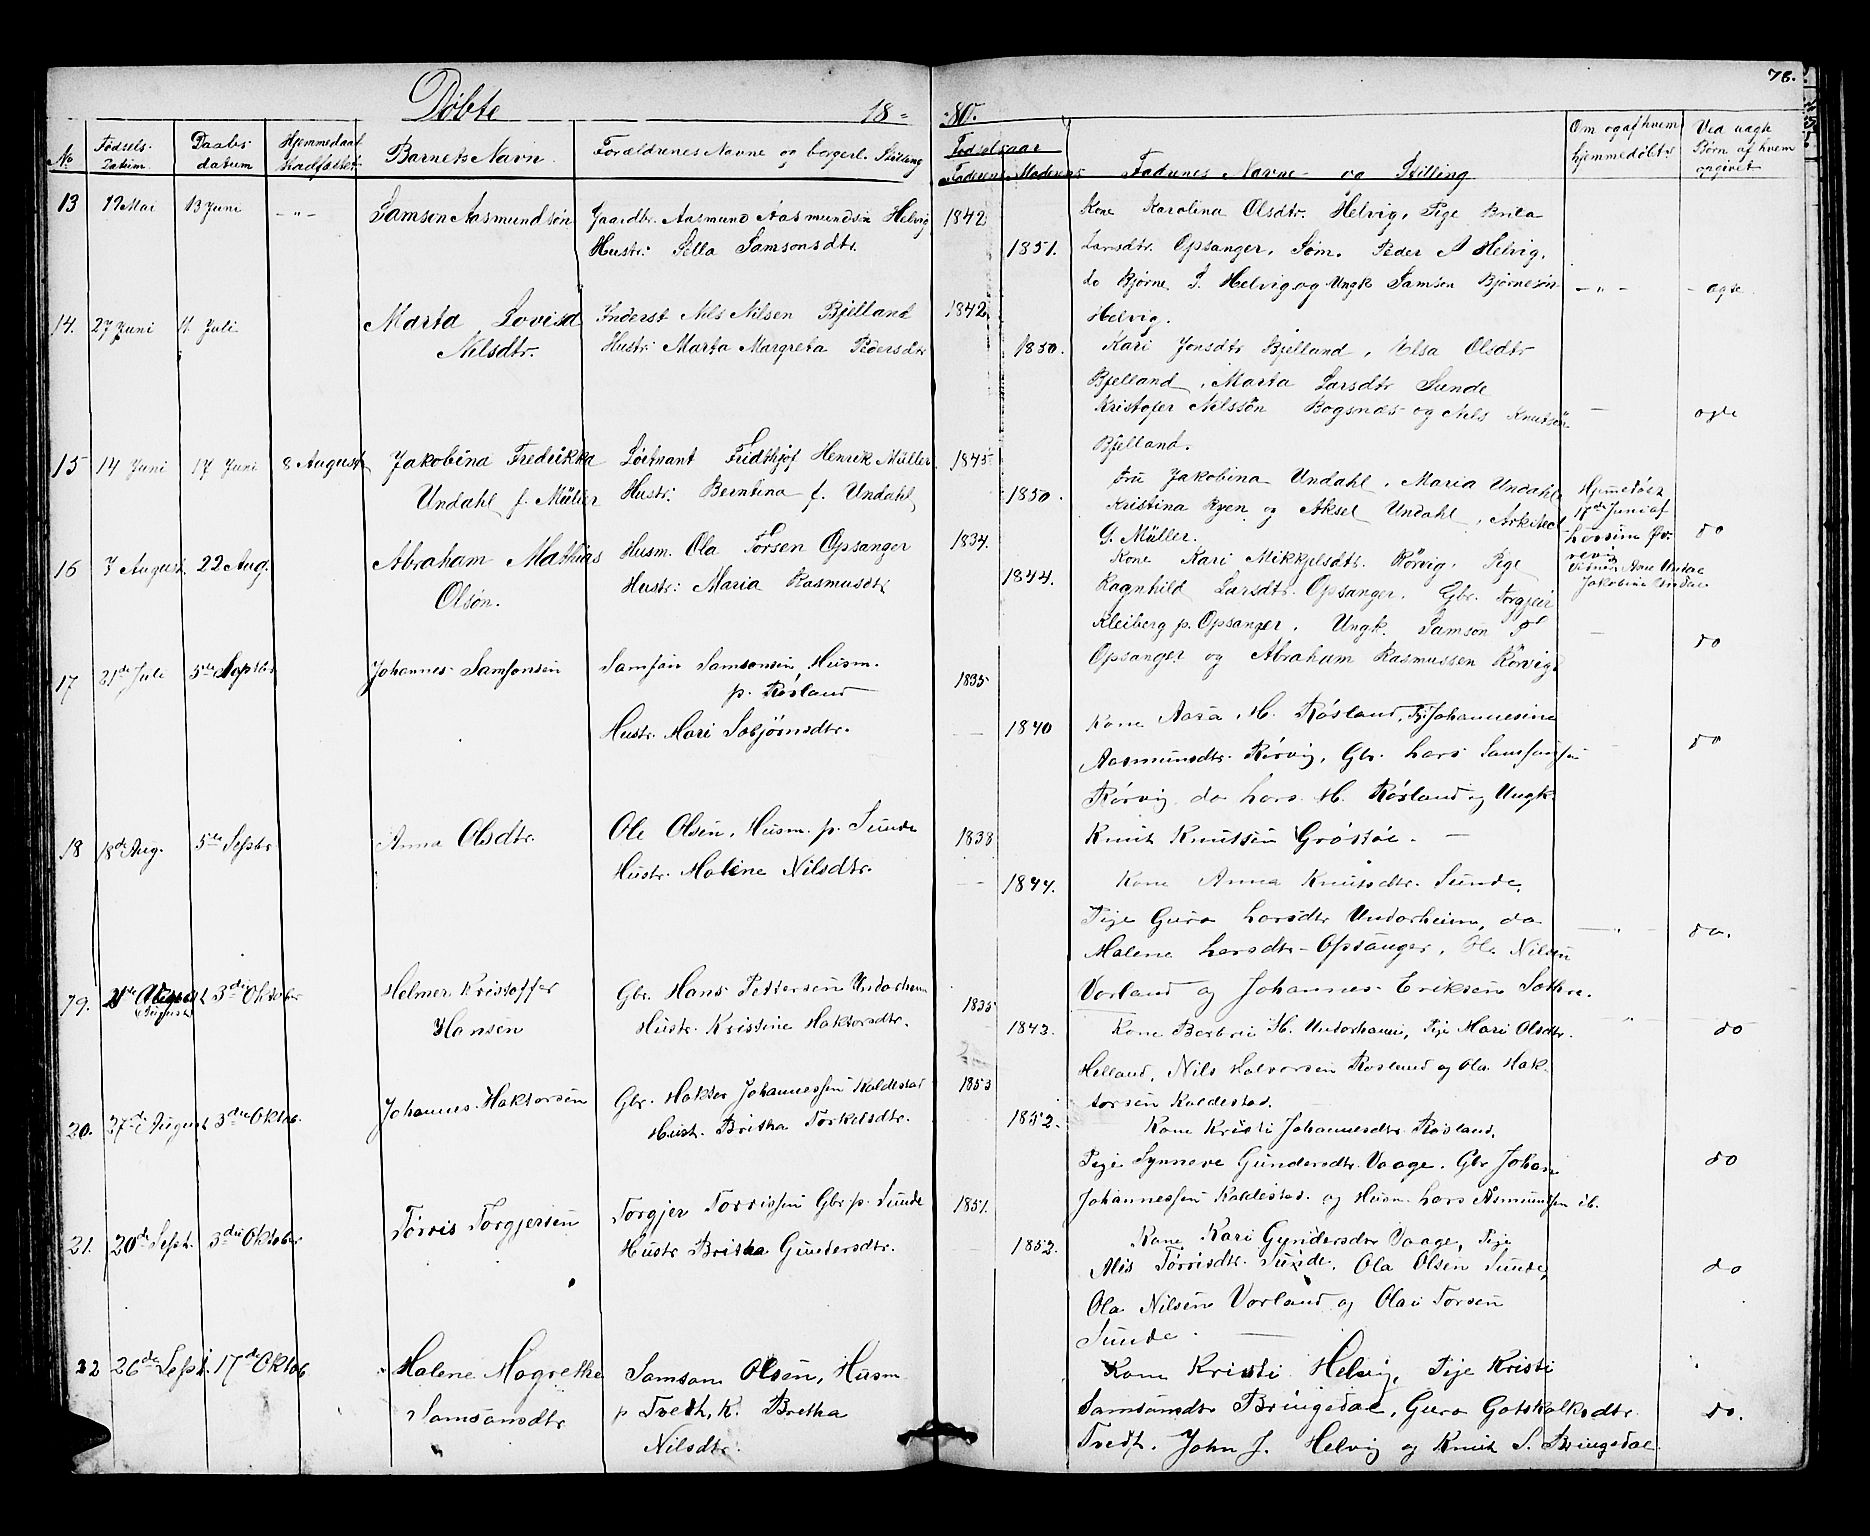 76.
Döbte 18 - 80.
No
Fødsels-
Datum
Daabs-
datum
Hjemmedaab
Stadfæstet
Barnets Navn
Forældrenes Navne og borgerl. Stilling
Fødselsaar
Faderens Moderens
Faddernes Navne og Stilling
Om og af hvem
hjemmedøbt
Ved uægte
Børn af hvem
opgivet
13 19 Mai 13 Juni -"- Samson Aasmundsön Gaardbr. Aasmund Aasmundsön Helvig 1842
Hustr: Sella Samsonsdtr. 1851.
Kone Karolina Olsdtr. Helvig, Pige Brita
Larsdtr. Opsanger, Søm. Peder A Helvig,
do Bjørne S. Helvig og Ungk Samson Bjørnesön
Helvig. -"- ægte
14. 27 Juni 11 Juli Marta Lovisa Inderst Nils Nilsen Bjelland 1842
Nilsdtr. Hustr: Marta Margreta Pedersdtr 1850.
Kari Jonsdtr Bjelland, Elsa Olsdtr
Bjelland, Marta Larsdtr Sunde
Kristofer Nilssön Bogsnes og Nils Knutsön
Bjelland. - ægte
15 14 Juni 17 Juni 8 August Jakobina Fredrikka Löitnant Fridthjof Henrik Müller 1845
Undahl f. Müller Hustr: Berntina f. Undahl 1850.
Fru Jakobina Undahl, Maria Undahl,
Kristina Ryen og Aksel Undahl, Arkitect
G. Müller.
Hjemedöbt
17de Juni af
do
16 7 August 22 Aug. Abraham Mathias Husm. Ola Torsen Opsanger 1834.
Olsön. Hustr: Maria Rasmusdtr 1844.
Kone Kari Mikkjelsdtr. Rörvig, Pige
Ragnhild Larsdtr. Opsanger, Gbr. Torgjeir
Kleiberg p. Opsanger, Ungk. Samson T
Opsanger og Abraham Rasmussen Rörvig. - do
17 21de Juli 5te Septbr Johannes Samsonsen Samson Samsonsen Husm. 1835
p. Røsland
Hustr. Mari Sobjörnsdtr. 1840
Kone Aasa H. Røsland, Pige Johannesine
Aasmundsdtr. Rørvig, Gbr. Lars Samsonsen
Rørvig, do Lars H. Røsland og Ungk.
Knut Knutsen Grøstøe. - do
18 18de Aug. 5te Septbr Anna Olsdtr. Ole Olsen, Husm. p. Sunde 1838
Hustr. Malene Nilsdtr. 1844.
Kone Anna Knutsdtr. Sunde,
Pige Guro Larsdtr Undarheim, do
Malene Larsdtr. Opsanger, Ola Nilsen
Vorland og Johannes Eriksen Sætre. -"- do.
19. 21de August 3die Oktober Helmer Kristoffer Gbr. Hans Pettersen Undarheim 1835
Hansen Hustr. Kristine Haktorsdtr. 1843.
Kone Barbrui H. Undarheim, Pige Mari Olsdtr.
Helland, Nils Halvorsen Røsland og Ola Hak-
torsen Kaldestad. -"- do
20. 27de August 3die Oktob. Johannes Haktorsen Gbr. Haktor Johannessen Kaldestad 1853
Hust. Britha Torkelsdtr. 1852.
Kone Kristi Johannesdtr Røsland,
Pige Synneve Gundersdtr. Vaage, Gbr Johan
Johannessen Kaldestad og Husm. Lars Asmundsen ib. do
21. 20de Sept. 3die Oktober Tørris Torgjersen Torgjer Torrissen Gbr p. Sunde 1851
Hustr Britha Gundersdtr. 1852.
Kone Kari Gyndersdtr Vaage, Pige
Alis Törrisdtr. Sunde, Ola Olsen Sunde,
Ola Nilsen Vorland og Olai Torsen
Sunde. - do
22 26de Sept. 17de Oktob Malene Magrethe Samson Olsen, Husm
Samsonsdtr p Tvedt, K. Bretha
Nilsdtr.
Kone Kristi Helvig, Pige Kristi
Samsonsdtr Bringedal, Guro Gotskalksdtr.
Tvedt, John J. Helvig og Knut S. Bringedal. do.